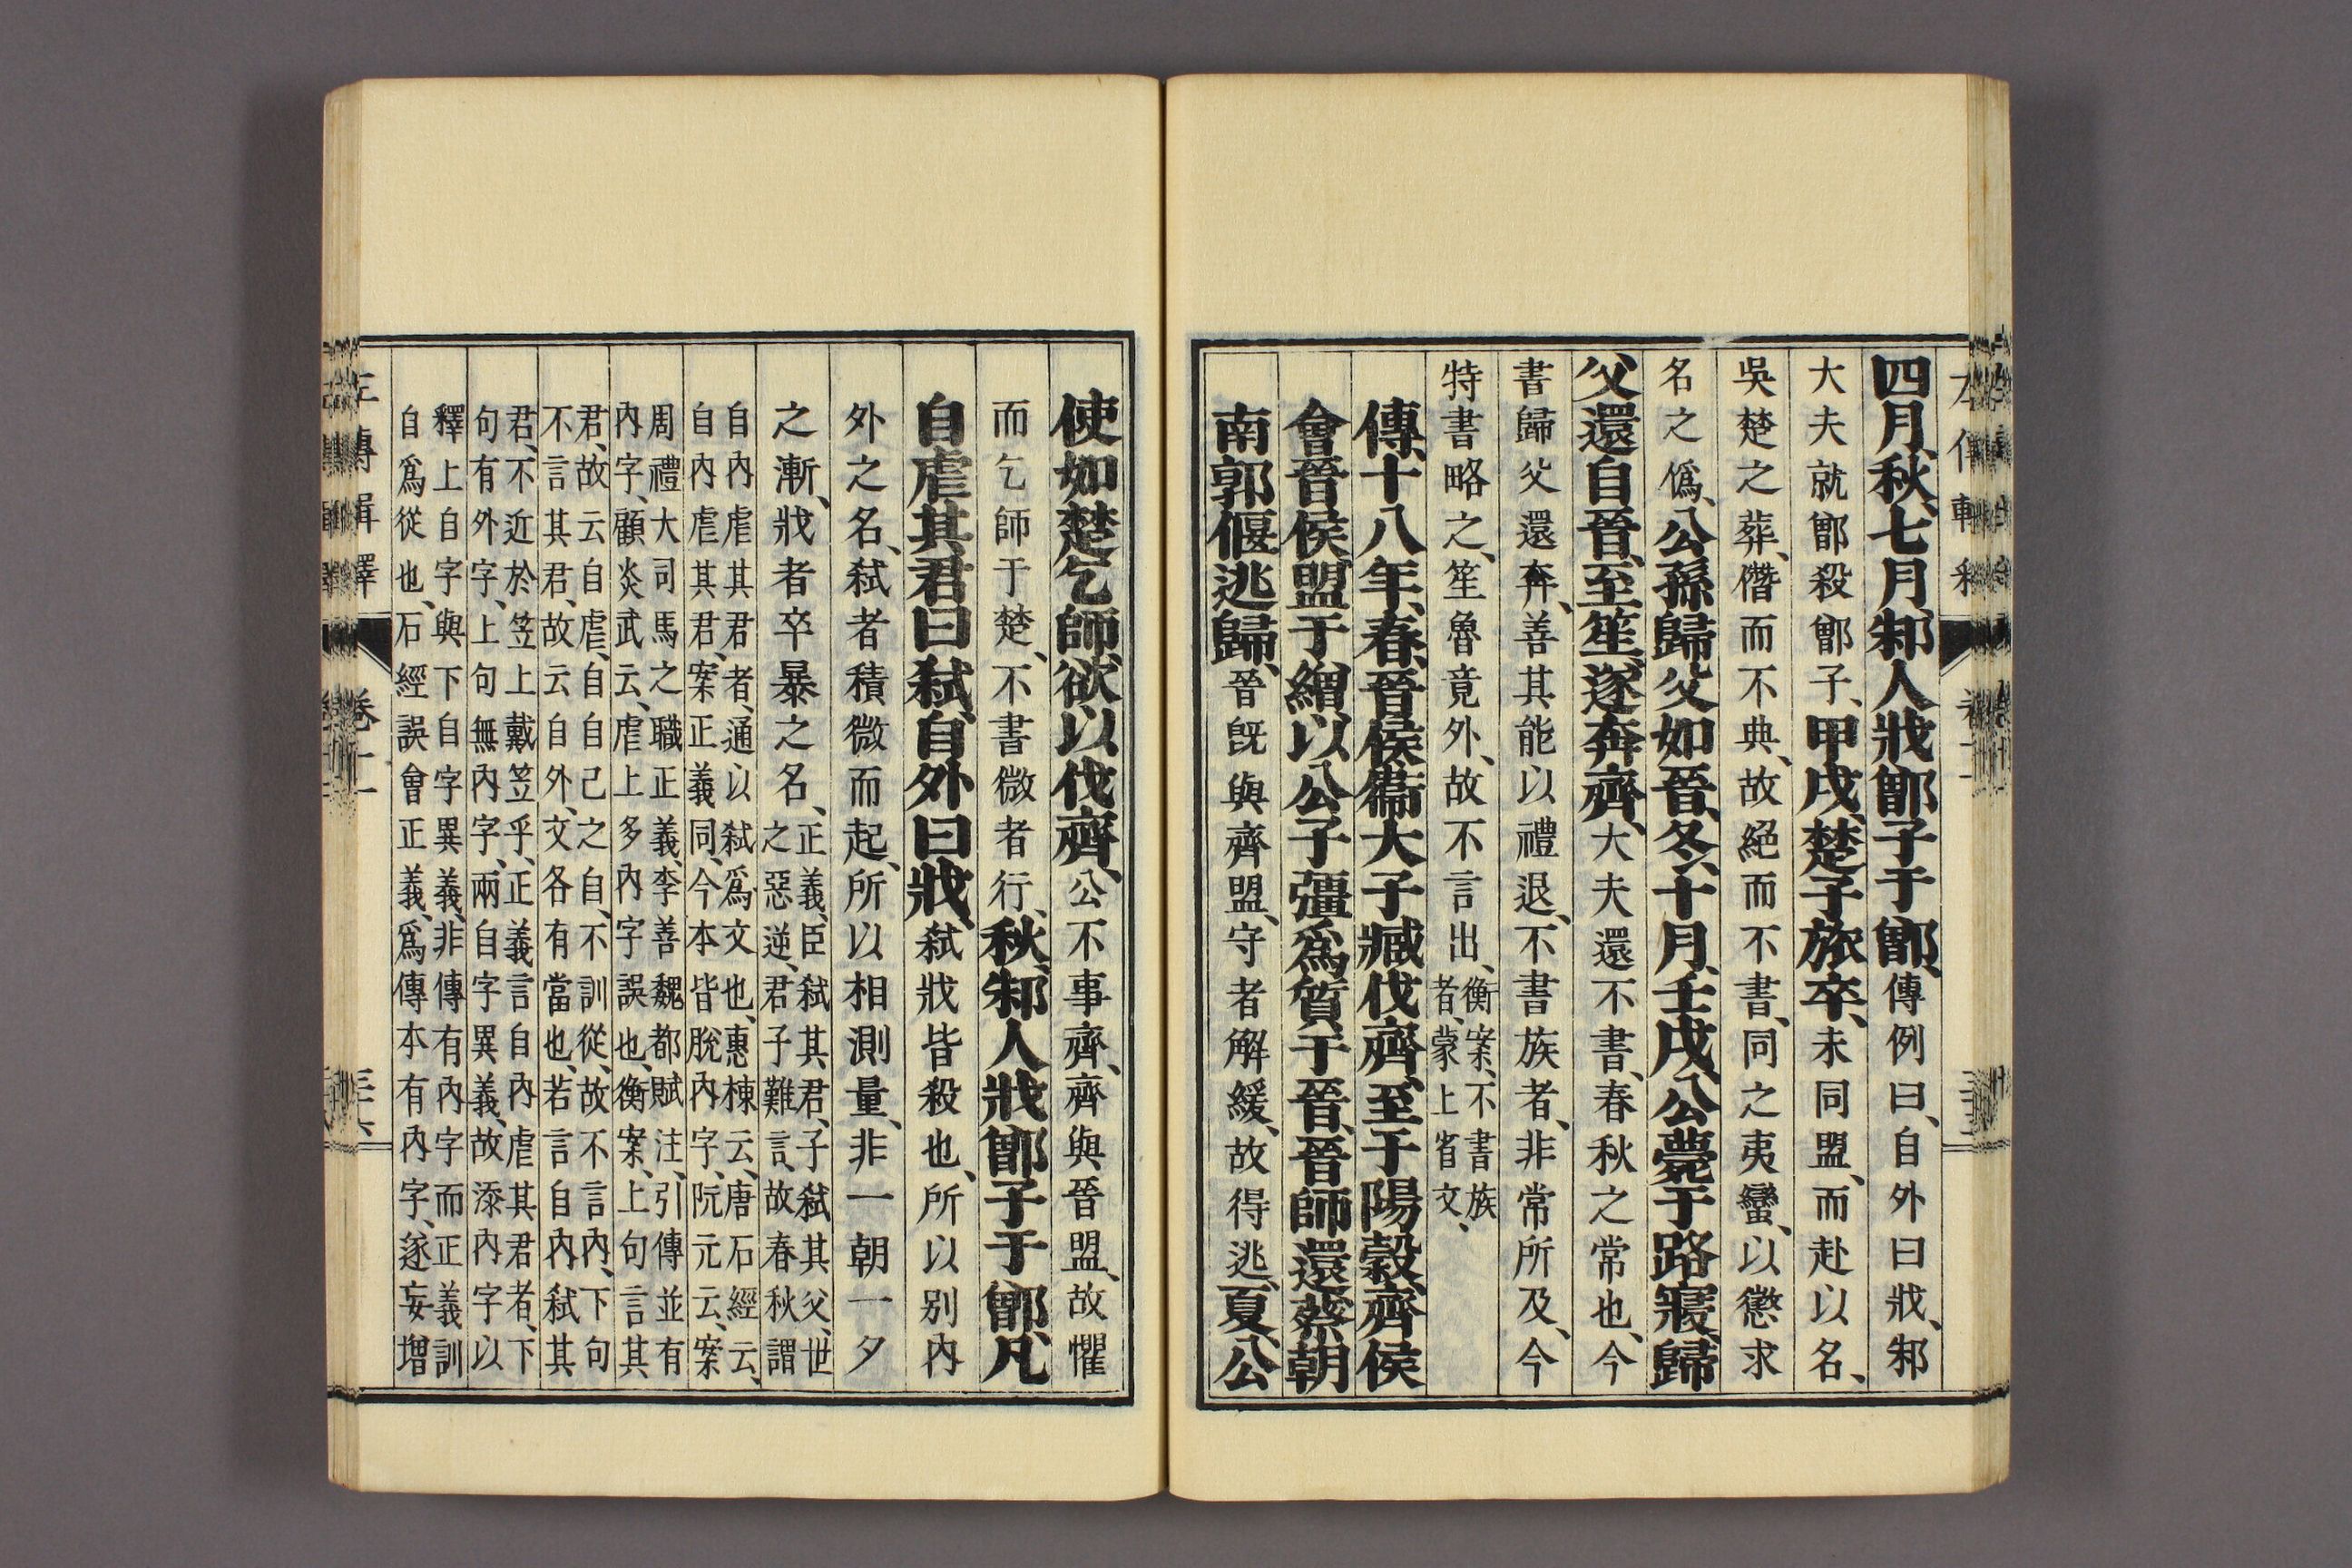 四月、秋、七月、邾人戕鄫子于鄫、傳例曰、自外曰戕、邾
大夫就鄫殺鄫子、甲戌、楚子旅卒、未同盟、而赴以名、
吳楚之葬、僭而不典、故絕而不書、同之夷蠻、以懲求
名之僞、公孫歸父如晉、冬、十月、壬戌、公薨于路寢、歸
父還自晉、至笙、遂奔齊、大夫還不書、春秋之常也、今
書歸父還奔、善其能以禮退、不書族者、非常所及、今
特書略之、笙魯竟外、故不言出、衡案、不書族
者、蒙上省文、
傳、十八年、春、晉侯衞大子臧伐齊、至于陽穀、齊侯
會晉侯、盟于繒、以公子彊爲質于晉、晉師還、蔡朝
南郭偃逃歸、晉既與齊盟、守者解緩、故得逃、夏、公
使如楚乞師、欲以伐齊、公不事齊、齊與晉盟、故懼
而乞師于楚、不書微者行、秋、邾人戕鄫子于鄫、凡
自虐其君曰弒、自外曰戕、弒戕皆殺也、所以別內
外之名、弒者積微而起、所以相測量、非一朝一夕
之漸、戕者卒暴之名、正義、臣弒其君、子弒其父、世
之惡逆、君子難言、故春秋謂
自內虐其君者、通以弒爲文也、惠棟云、唐石經云、
自內虐其君、案正義同、今本皆脫內字、阮元云、案
周禮大司馬之職正義、李善魏都賦注、引傳並有
內字、顧炎武云、虐上多內字誤也、衡案、上句言其
君、故云自虐、自自己之自、不訓從、故不言內、下句
不言其君、故云自外、文各有當也、若言自內弒其
君、不近於笠上戴笠乎、正義言自內虐其君者、下
句有外字、上句無內字、兩自字異義、故添內字以
釋上自字與下自字異義、非傳有內字而正義訓
自爲從也、石經誤會正義、爲傳本有內字、遂妄增
左傳輯釋 卷十一